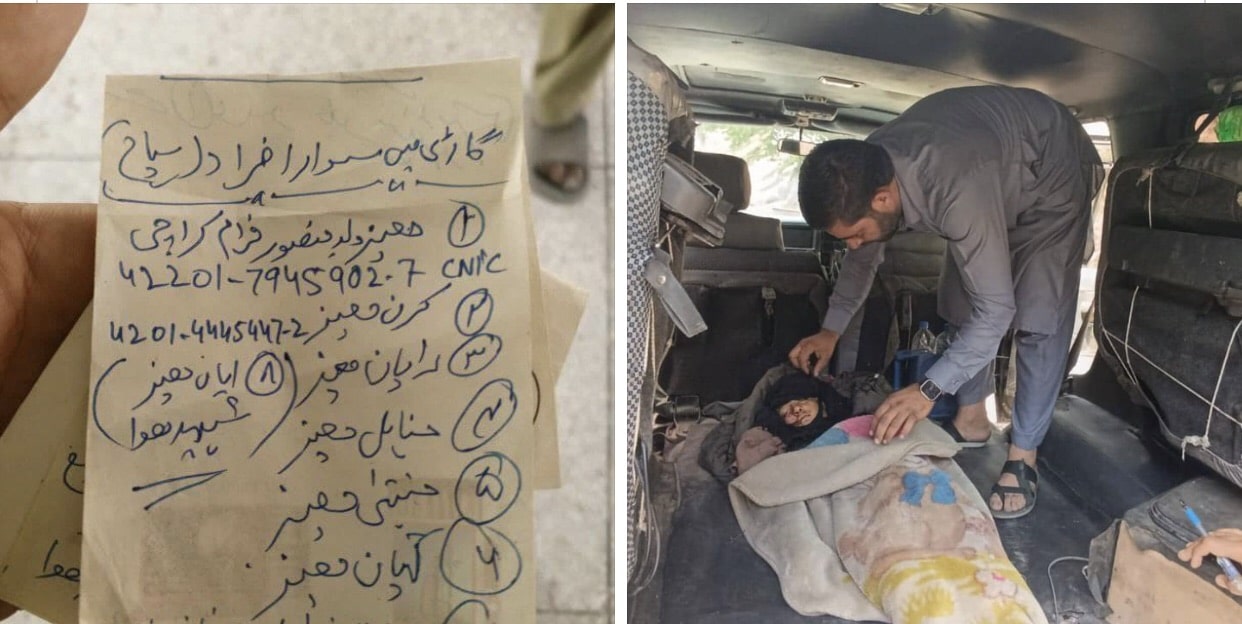 گاڑی میں سوار افراد (سیاح)
① معیز ولد منصور فرام کراچی
42201-7945902-7 CNIC
② کرن معیز 4201-4445447-2
③ رایان معیز
④ معیز
⑤ معیز
⑥ کیان معیز
(⑧ ایان معیز
شہید ہوا)
ہوا